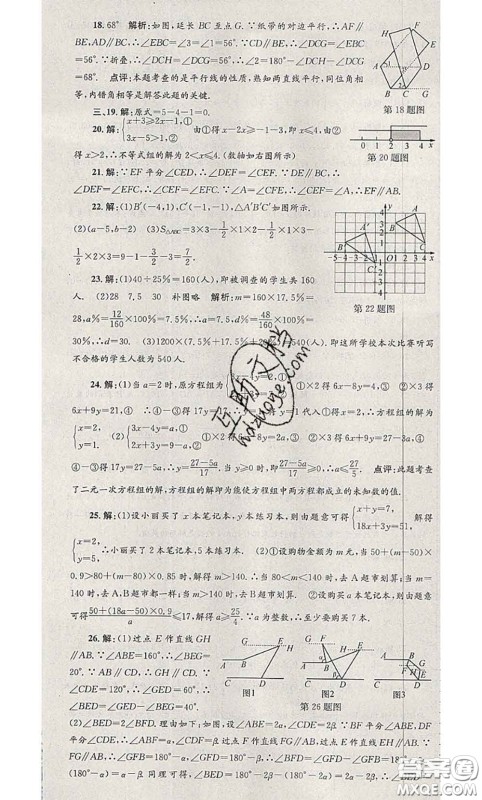 18.68° 解析:如图,延长BC至点G.∵纸带的对边平行,∴AF∥
BE,AB∥DE,∴∠EBC=∠1=56°.∵CD∥BE,∴∠DCG=∠EBC
=56°.∵折叠,∴∠DCH=∠DCG=56°,∴∠2=180°-∠DCH-∠DCG=
=68°. 点评:本题考查的是平行线的性质,熟知两直线平行,同位角相
等,内错角相等是解答此题的关键.
第18题图
三、19.解:原式=5-4-1=0.
20.解:{x+3≥2x-1,①
3x-5>1,② 由①得x-2x≥-1-3,即x≤4.由②
得x>2,∴不等式组的解为2<x≤4.(数轴如右图所示)
0 1 2 3 4 x
第20题图
21.解:∵EF平分∠CED,∴∠DEF=∠CEF.∵DE∥BC,∴
∠DEF=∠EFC,∴∠CEF=∠EFC.∵∠A=∠EFC,∴∠A=∠CEF,∴EF∥AB.
22.解:(1)B′(-4,1),C′(-1,-1),△A′B′C′如图所示.
(2)(a-5,b-2) (3)S△ABC=3×3-1/2×1×2-1/2×3×1-1/2
×2×3=7/2
第22题图
23.解:(1)40÷25%=160(人),即被调查的学生共160
人. (2)28 7,5 30 补图略 解析:m=160×17.5%=
28,a%=12/160×100%=7.5%,∴a=7.5,b%=48/160×100%=
30%,∴b=30. (3)1800×30%=540(人).即这所学校本次比赛听写
不合格的学生人数为540人.
24.解:(1)当a=2时,原方程组为 =2,② ①×2得6x-8y=4,③ ②×3得
6x+9y=21,④ ∴④-③得17y=17,∴y=1.把y=1代入①得x=2,∴方程组的解为
{x=2,
y=1. (2) ①×2得6x-8y=4,③ ②×3得6x+9y=27-5a,④
④-③得17y=27-5a,∴y=(27-5a)/17. 当y≥0时,即(27-5a)/17≥0,∴a≤27/5. 点评:此题考查
了二元一次方程组的解,方程组的解即为能使方程组中两方程都成立的未知数的值.
25.解:(1)设小丽买了x本笔记本,y本练习本,则由题意可得{x+y=7,
18x+3y=51, 解得
{x=2,
y=5, ∴小丽买了2本笔记本,5本练习本. (2)①设购物金额为m元,当50+(m-50)×
0.9>80+(m-80)×0.85时,解得m>140.∴当80<m<140时,去A超市划算;当m=
140时,去A,B超市都一样;当m>140时,去B超市划算. ②设买a本笔记本,则由题意可得
(50+(18a-50)×0.9)/a≤17,解得a≥25/4.∵a为整数,∴至少要购买7本.
26.解:(1)过点E作直线GH
∥AB.∵∠ABE=160°,∴∠BEG=
20°.∵AB∥CD,∴GH∥CD.∵
∠CDE=120°,∴∠DEG=60°,∴
∠BED=∠BEG+∠DEG=80°.
图1 图2 图3
第26题图
(2)∠BED=2∠BFD.理由如下:如图2,设∠ABE=2α,∠CDE=2β.∵BF平分
∠ABE,DF平分∠CDE,∴∠ABF=α,∠CDF=β.过点E作直线EH∥AB,过点F作直线
FG∥AB,∴∠GFB=180°-α,∠GFD=180°-β,∴∠BFD=∠GFB-∠GFD=(180°-α)-
(180°-α)=α-β.同理可得,∠BED=(180°-2β)-(180°-2α)=2α-2β,∴∠BED=2∠BFD.
互助文学
hdzuoye.com
答案圈
MXQE.COM